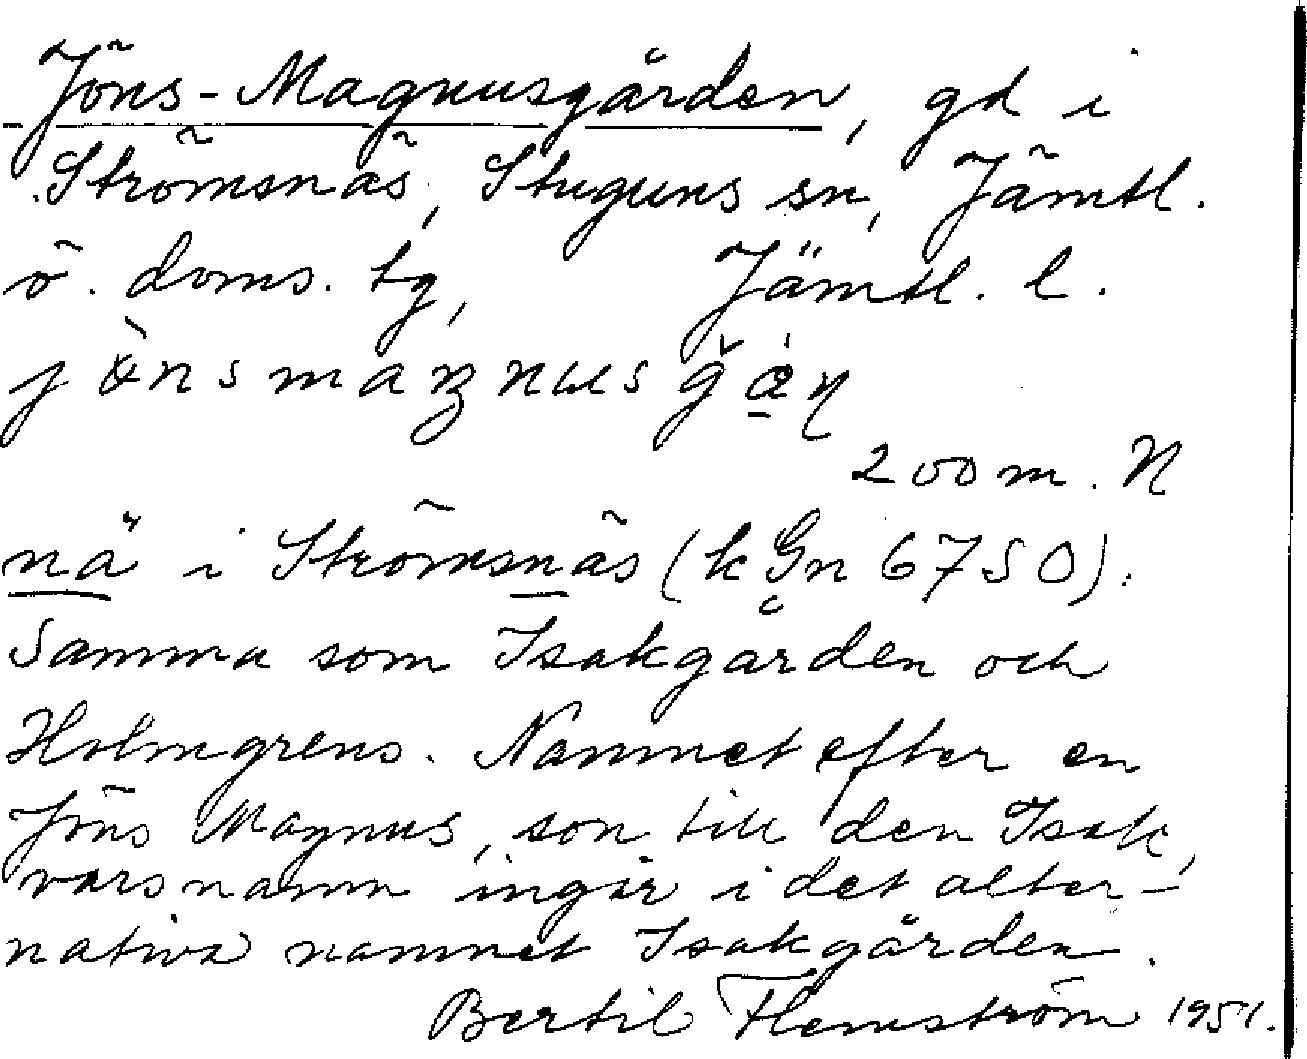 Jöns-Magnusgården, gd i
Strömsnäs, Stuguns sn, Jämtl.
ö. doms. tg, Jämtl. l.
200 m. N
nä i Strömsnäs (k Gn 6750).
Samma som Isakgården och
Holmgrens. Namnet efter en
Jöns Magnus, son till den Isak,
vars namn ingår i det alter-
nativa namnet Isakgården.
Bertil Flemström 1951.